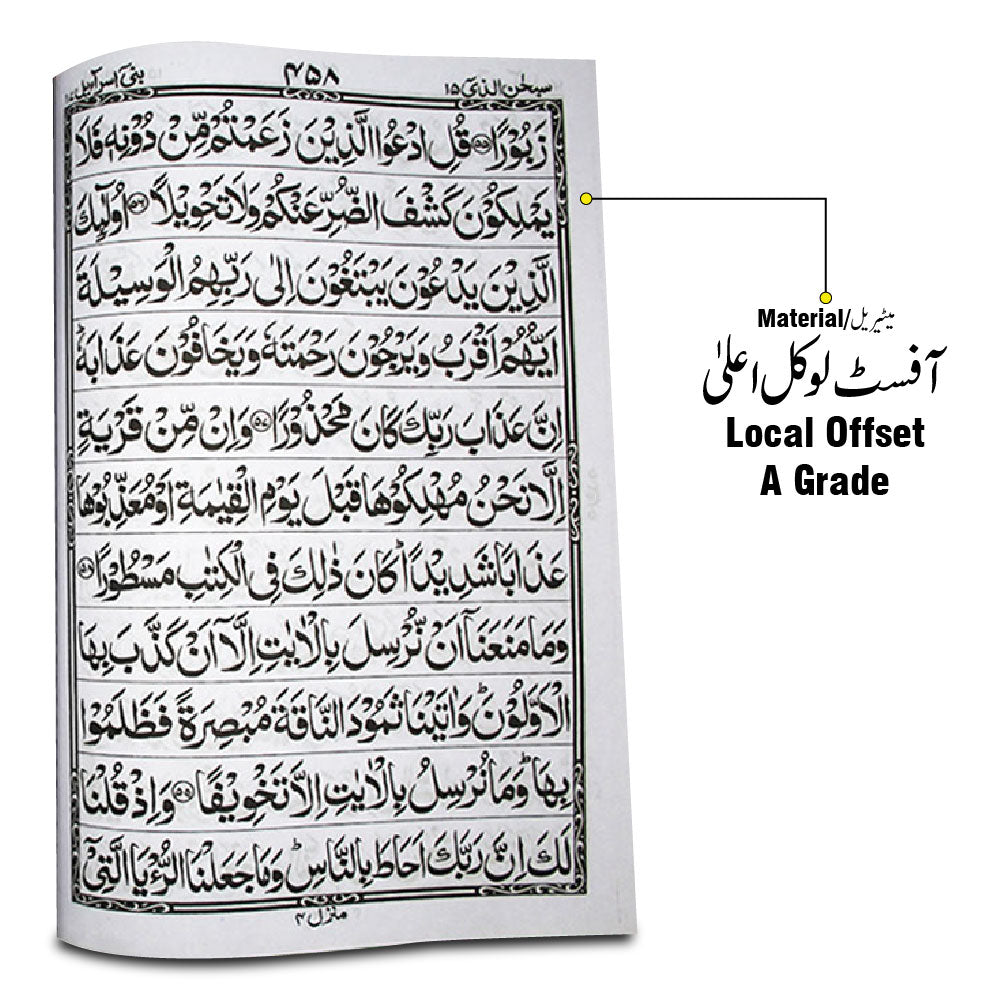 سبحٰن الذیٓ ١٥
٤٥٨
بنیٓ اسرآءیل ١٧
زَبُوْرًا ﴿٥٥﴾ قُلِ ادْعُوا الَّذِيْنَ زَعَمْتُمْ مِّنْ دُوْنِهٖ فَلَا
يَمْلِكُوْنَ كَشْفَ الضُّرِّ عَنْكُمْ وَلَا تَحْوِيْلًا ﴿٥٦﴾ اُولٰٓئِكَ
الَّذِيْنَ يَدْعُوْنَ يَبْتَغُوْنَ اِلٰى رَبِّهِمُ الْوَسِيْلَةَ
اَيُّهُمْ اَقْرَبُ وَيَرْجُوْنَ رَحْمَتَهٗ وَيَخَافُوْنَ عَذَابَهٗ
اِنَّ عَذَابَ رَبِّكَ كَانَ مَحْذُوْرًا ﴿٥٧﴾ وَاِنْ مِّنْ قَرْيَةٍ
اِلَّا نَحْنُ مُهْلِكُوْهَا قَبْلَ يَوْمِ الْقِيٰمَةِ اَوْ مُعَذِّبُوْهَا
عَذَابًا شَدِيْدًا ؕ كَانَ ذٰلِكَ فِى الْكِتٰبِ مَسْطُوْرًا ﴿٥٨﴾
وَمَا مَنَعَنَآ اَنْ نُّرْسِلَ بِالْاٰيٰتِ اِلَّآ اَنْ كَذَّبَ بِهَا
الْاَوَّلُوْنَ ؕ وَاٰتَيْنَا ثَمُوْدَ النَّاقَةَ مُبْصِرَةً فَظَلَمُوْا
بِهَا ؕ وَمَا نُرْسِلُ بِالْاٰيٰتِ اِلَّا تَخْوِيْفًا ﴿٥٩﴾ وَاِذْ قُلْنَا
لَكَ اِنَّ رَبَّكَ اَحَاطَ بِالنَّاسِ ؕ وَمَا جَعَلْنَا الرُّءْيَا الَّتِىْٓ
منزل ٤
Material/میٹیریل
آفسٹ لوکل اعلیٰ
Local Offset
A Grade